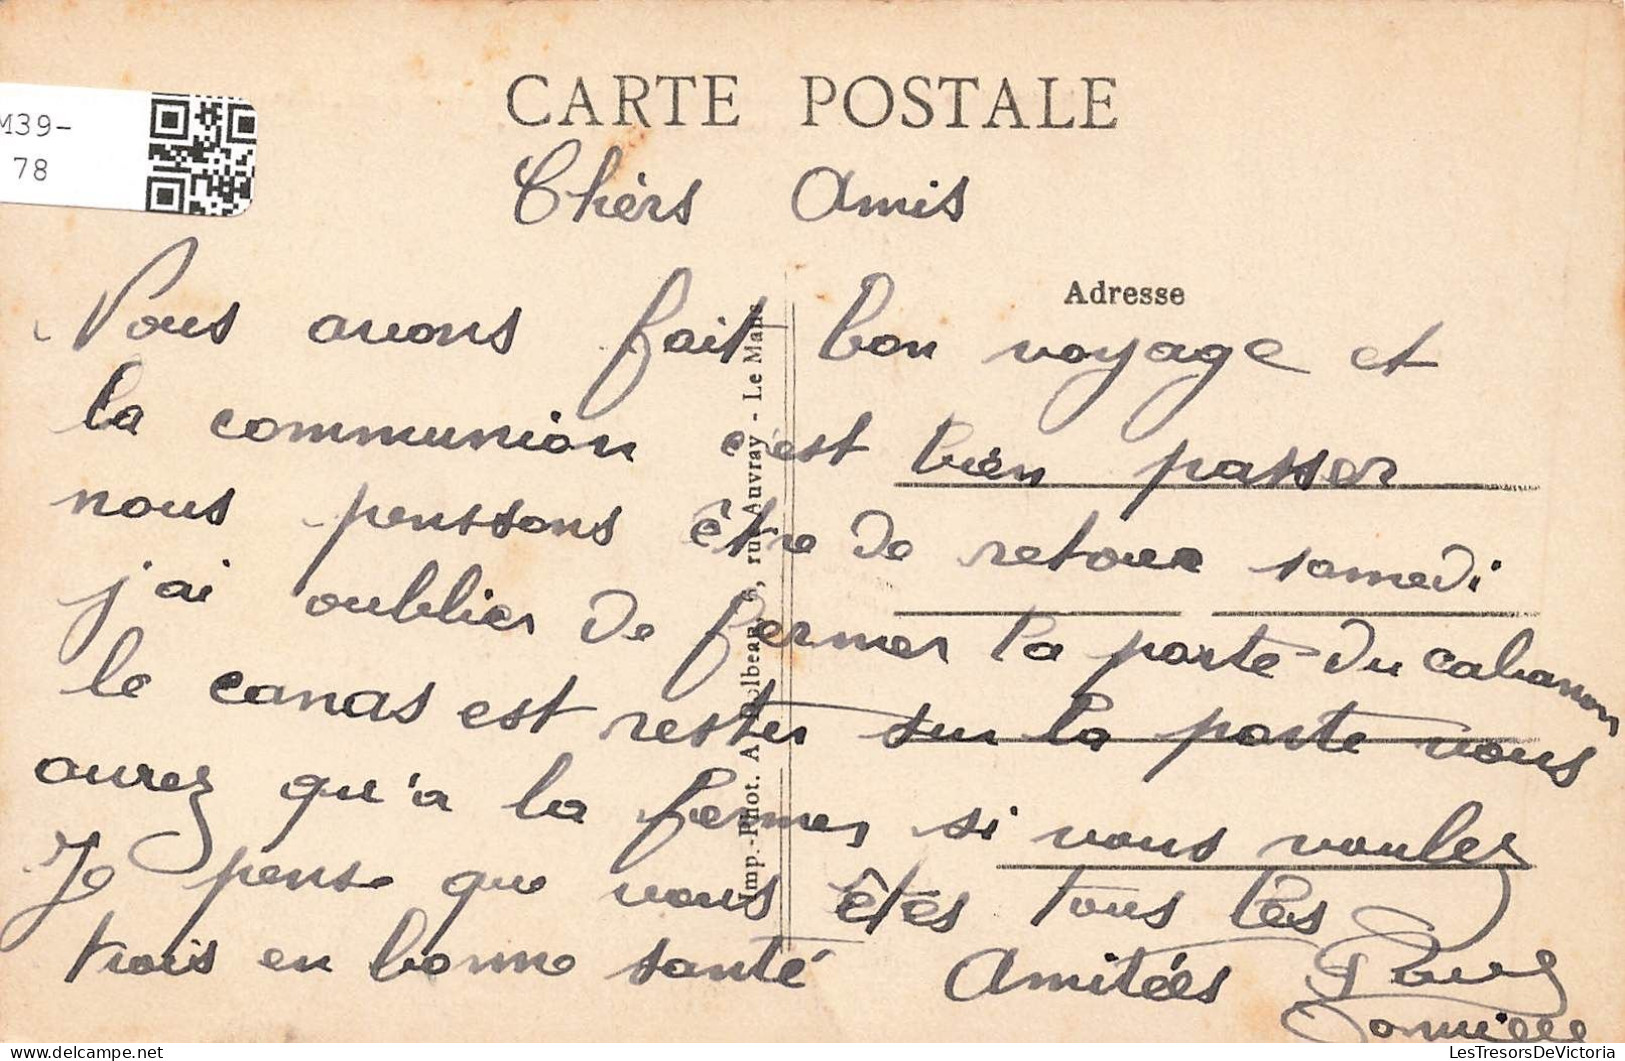 M39-
78
CARTE POSTALE
Chèrs Amis
Adresse
Nous avons fait bon voyage et
la communion c'est bien passer
nous penssons être de retour samedi
j'ai oublier de fermer la porte du cabanon
le canas est rester sur la porte vous
aurez qu'a la fermer si vous voulez
Je pense que vous êtes tous les
trois en bonne santé Amitées
Imp.-Phot. A. Dolbeau, rue Auvray - Le Mans
LesTresorsDeVictoria